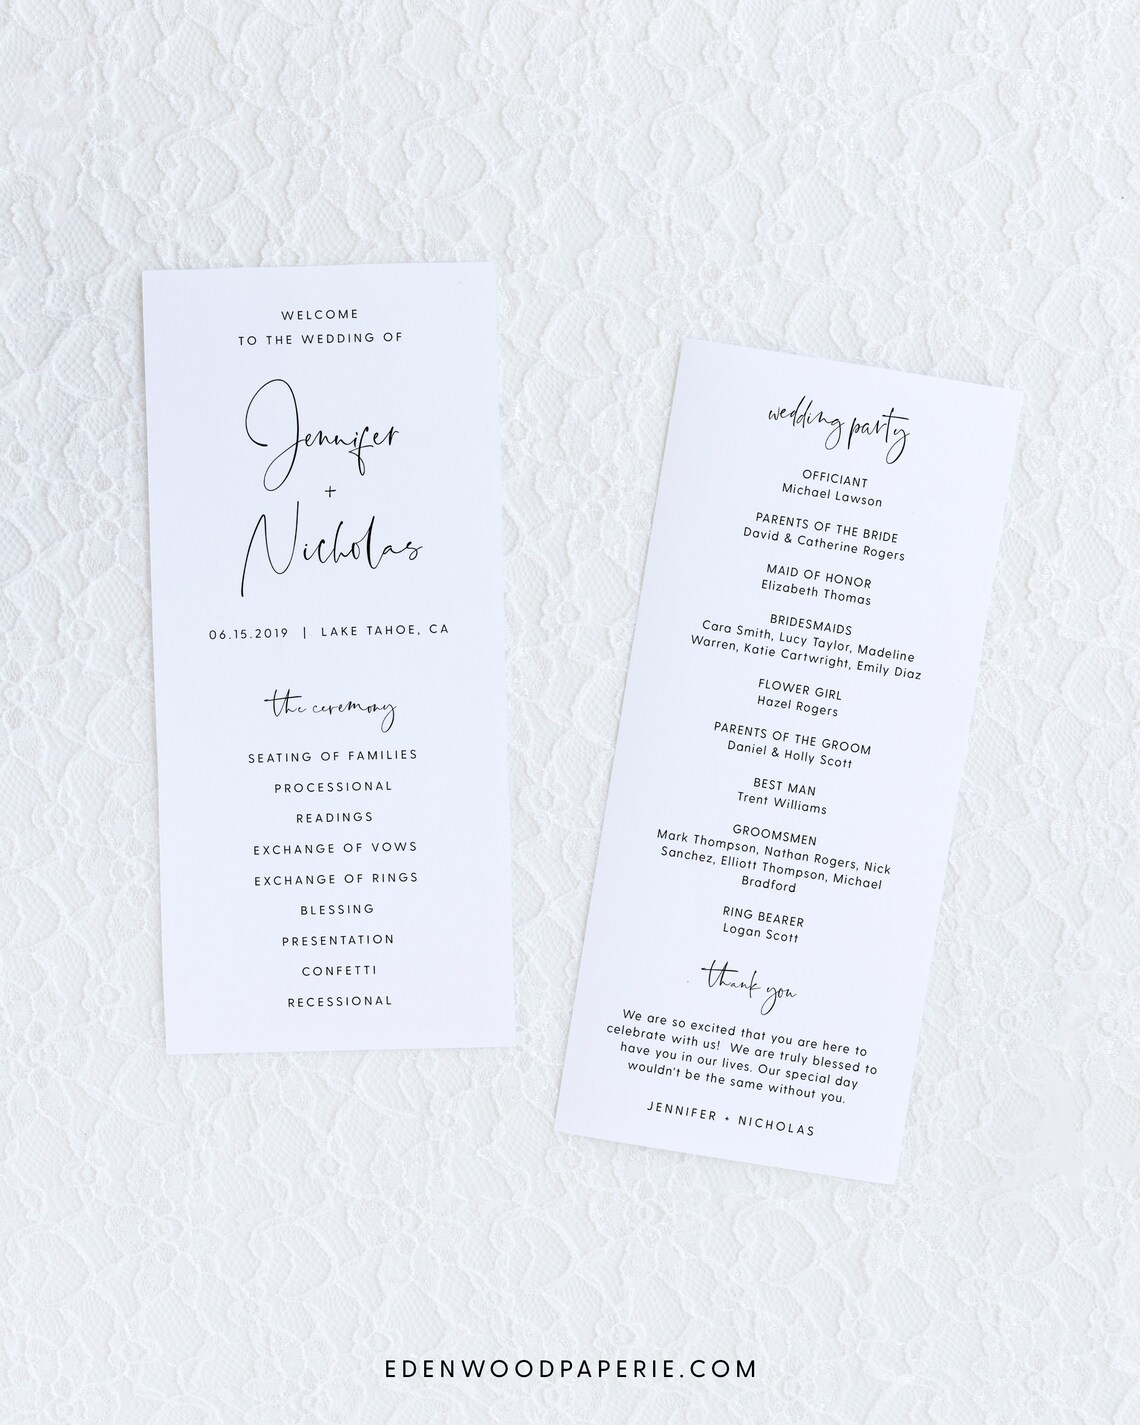 WELCOME
TO THE WEDDING OF
Jennifer
+
Nicholas
06.15.2019 | LAKE TAHOE, CA
the ceremony
SEATING OF FAMILIES
PROCESSIONAL
READINGS
EXCHANGE OF VOWS
EXCHANGE OF RINGS
BLESSING
PRESENTATION
CONFETTI
RECESSIONAL
wedding party
OFFICIANT
Michael Lawson
PARENTS OF THE BRIDE
David & Catherine Rogers
MAID OF HONOR
Elizabeth Thomas
BRIDESMAIDS
Cara Smith, Lucy Taylor, Madeline
Warren, Katie Cartwright, Emily Diaz
FLOWER GIRL
Hazel Rogers
PARENTS OF THE GROOM
Daniel & Holly Scott
BEST MAN
Trent Williams
GROOMSMEN
Mark Thompson, Nathan Rogers, Nick
Sanchez, Elliott Thompson, Michael
Bradford
RING BEARER
Logan Scott
thank you
We are so excited that you are here to
celebrate with us! We are truly blessed to
have you in our lives. Our special day
wouldn't be the same without you.
JENNIFER + NICHOLAS
EDENWOODPAPERIE.COM